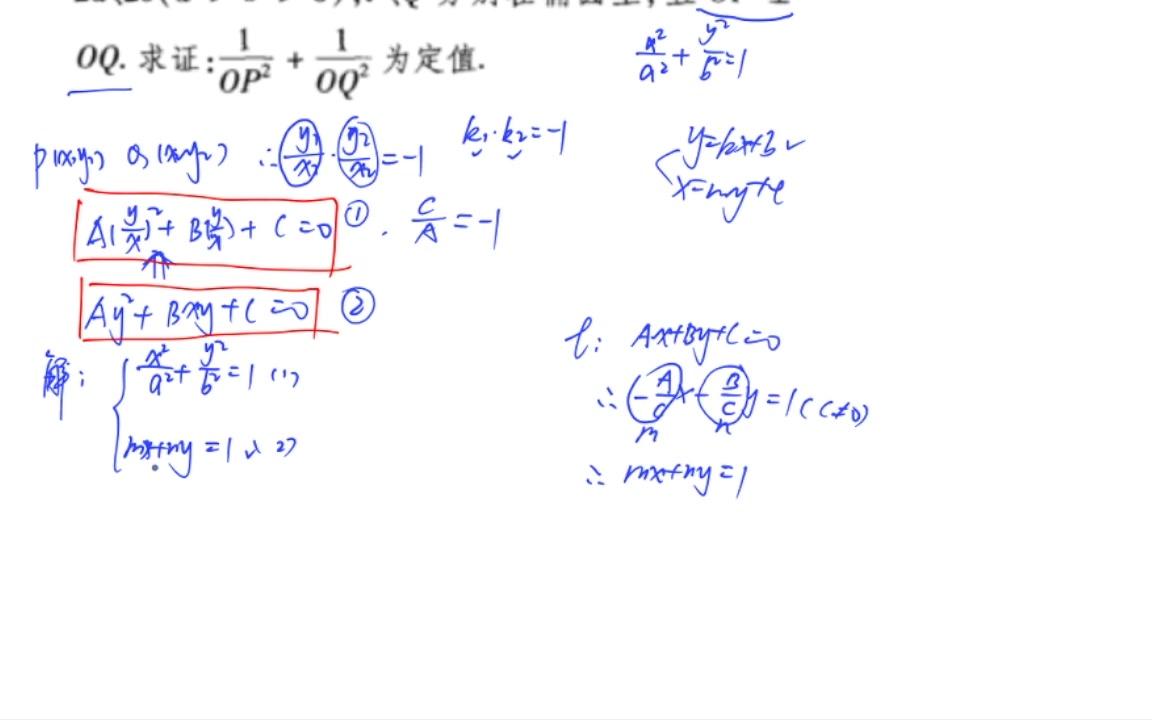 OQ. 求证: 1/OP² + 1/OQ² 为定值.
x²/a² + y²/b² = 1
P(x₁y₁) Q(x₂y₂) ∴ y₁/x₁ · y₂/x₂ = -1 k₁·k₂ = -1
y=kx+B ✓
A(y/x)² + B(y/x) + C = 0 ① . C/A = -1
Ay² + Bxy + C = 0 ②
l: Ax+By+C=0
解: { x²/a² + y²/b² = 1 (1)
mx+ny = 1 (2)
∴ (-A/C)x - (B/C)y = 1 (C≠0)
m n
∴ mx+ny=1